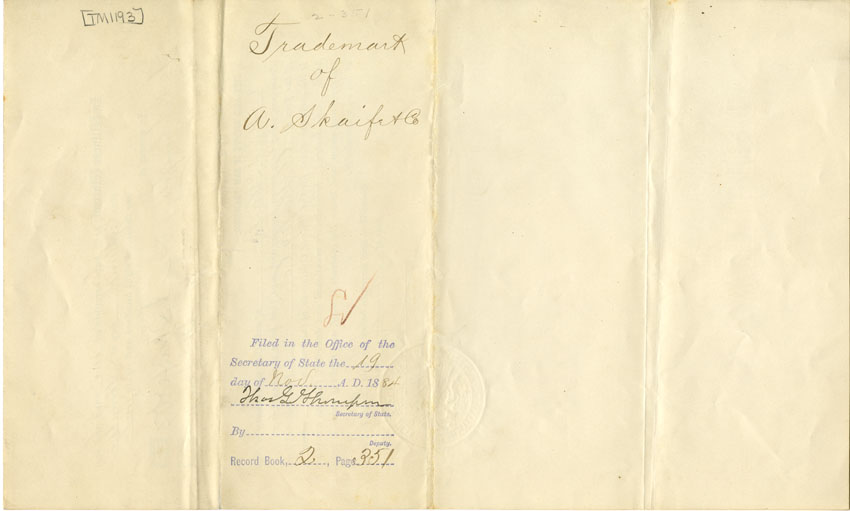 [TM1193]
2-351
Trademark
of
A. Skaife & Co
Filed in the Office of the
Secretary of State the 19
day of Nov. A. D. 1884
Thos L Thompson
Secretary of State.
By
Deputy.
Record Book, 2, Page 351